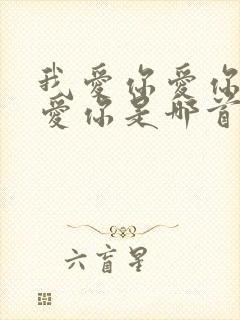 我爱你爱你
爱你是哪首
六盲星